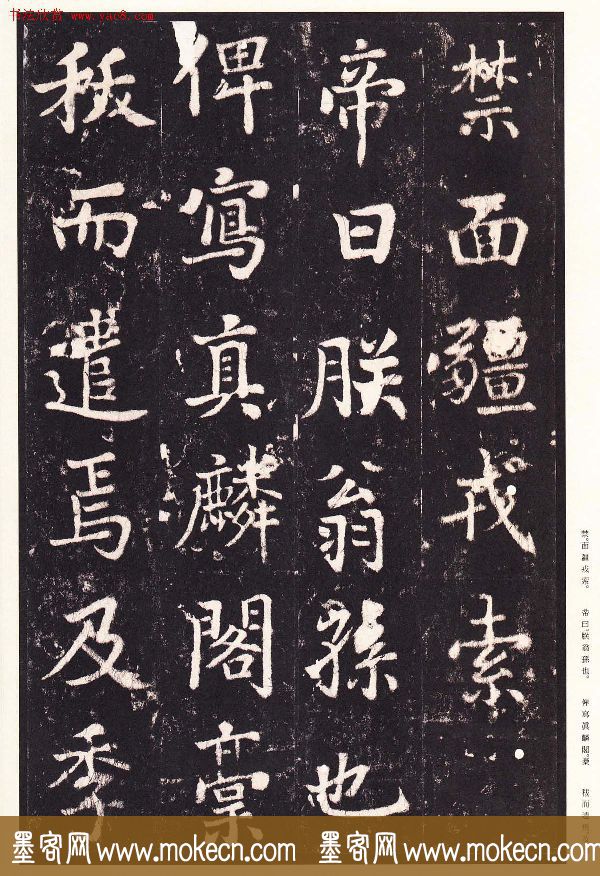 书法欣赏 www.yac8.com
禁面疆戎索
帝曰朕翁孫也
俾寫真麟閣
而遣焉及季
禁。面疆戎索。 帝曰。朕翁孫也。 俾寫真麟閣。
墨客网 www.mokecn.com 墨客网 www.mokecn.com